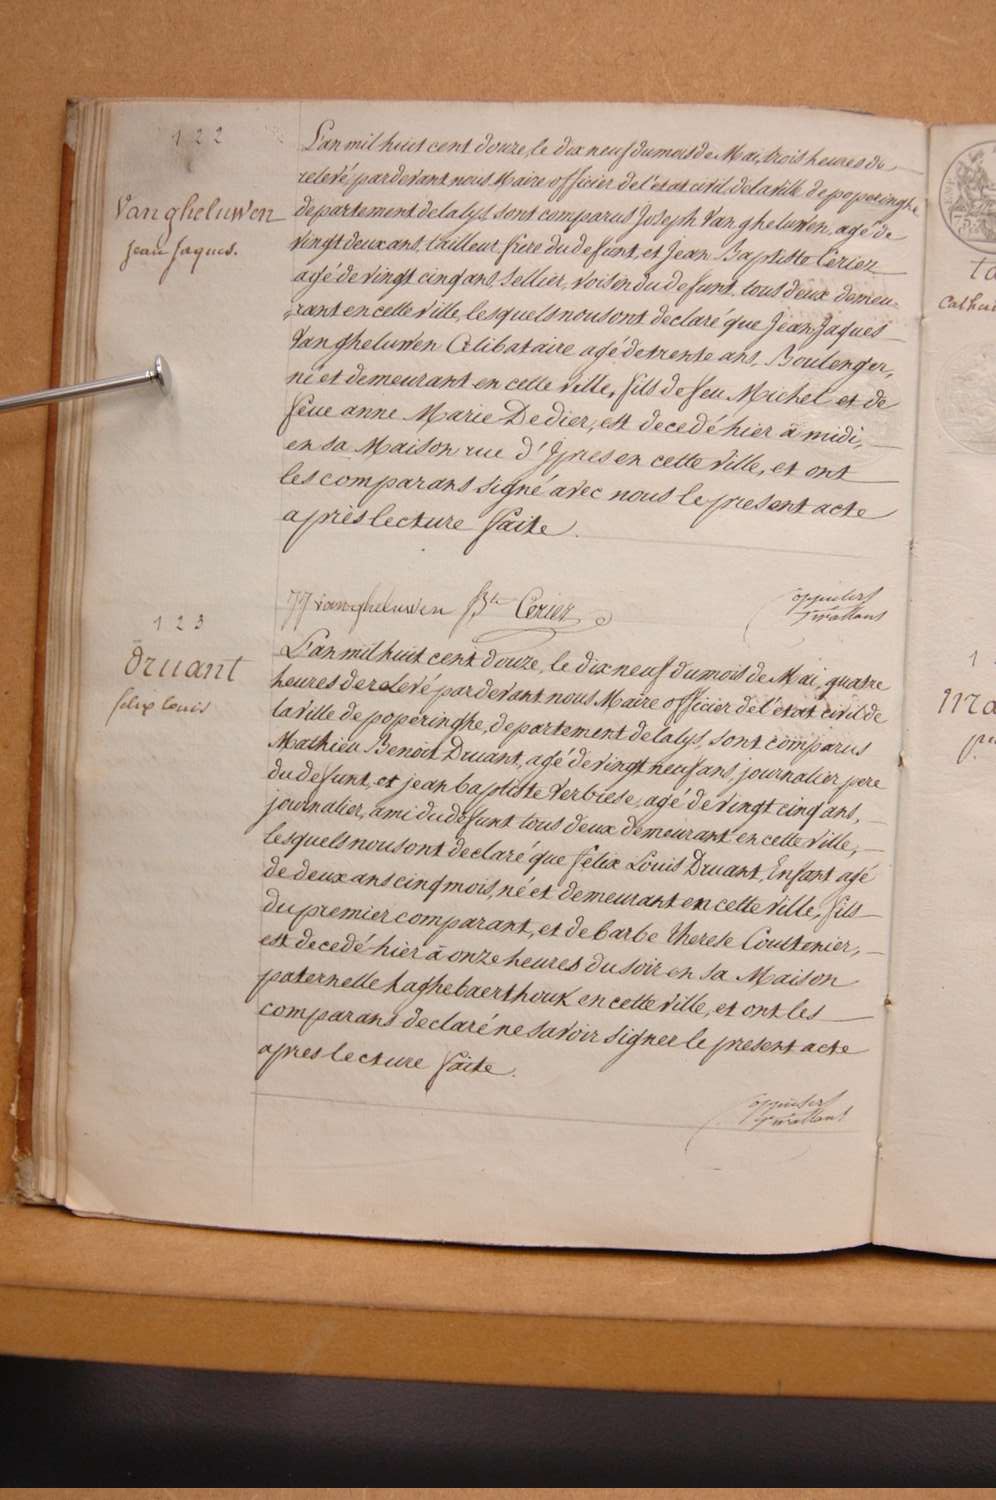 122
Vangheluwen
Jean Jaques.
L'an mil huit cent douze, le dix neuf du mois de Mai, trois heures de
relevé, pardevant nous Maire officier de l'etat civil de la ville de poperinghe
departement de la lys, sont comparus Joseph Vangheluwen, agé de
vingt deux ans, tailleur frere du defunt, et Jean Baptiste Cèriez
agé de vingt cinq ans, Sellier, voisin du defunt, tous deux demeu-
rant en cette ville, lesquels nous ont declaré que Jean Jaques
Vangheluwen Celibataire agé de trente ans, Boulenger,
né et demeurant en cette ville, fils de feu Michel et de
feue anne Marie Dedier, est decedé hier à midi,
en sa Maison rue d'Ypres en cette ville, et ont
les comparans signé avec nous le present acte
après lecture faite.
JJ vangheluwen J Bte Ceriez
123
Druant
felix louis
L'an mil huit cent douze, le dix neuf du mois de Mai, quatre
heures de relevé pardevant nous Maire officier de l'etat civil de
la ville de poperinghe, departement de la lys, sont comparus
Mathieu Benoit Druant, agé de vingt neuf ans, journalier, pere
du defunt, et jean baptiste Verbiese, agé de vingt cinq ans,
journalier, ami du defunt tous deux demeurant en cette ville,
lesquels nous ont declaré que felix Louis Druant, Enfant agé
de deux ans cinq mois, né et demeurant en cette ville, fils
du premier comparant, et de barbe therese Coutenier,
est decedé hier à onze heures du soir en sa Maison
paternelle haghebaerthouk en cette ville, et ont les
comparans declaré ne savoir signer le present acte
apres lecture faite.